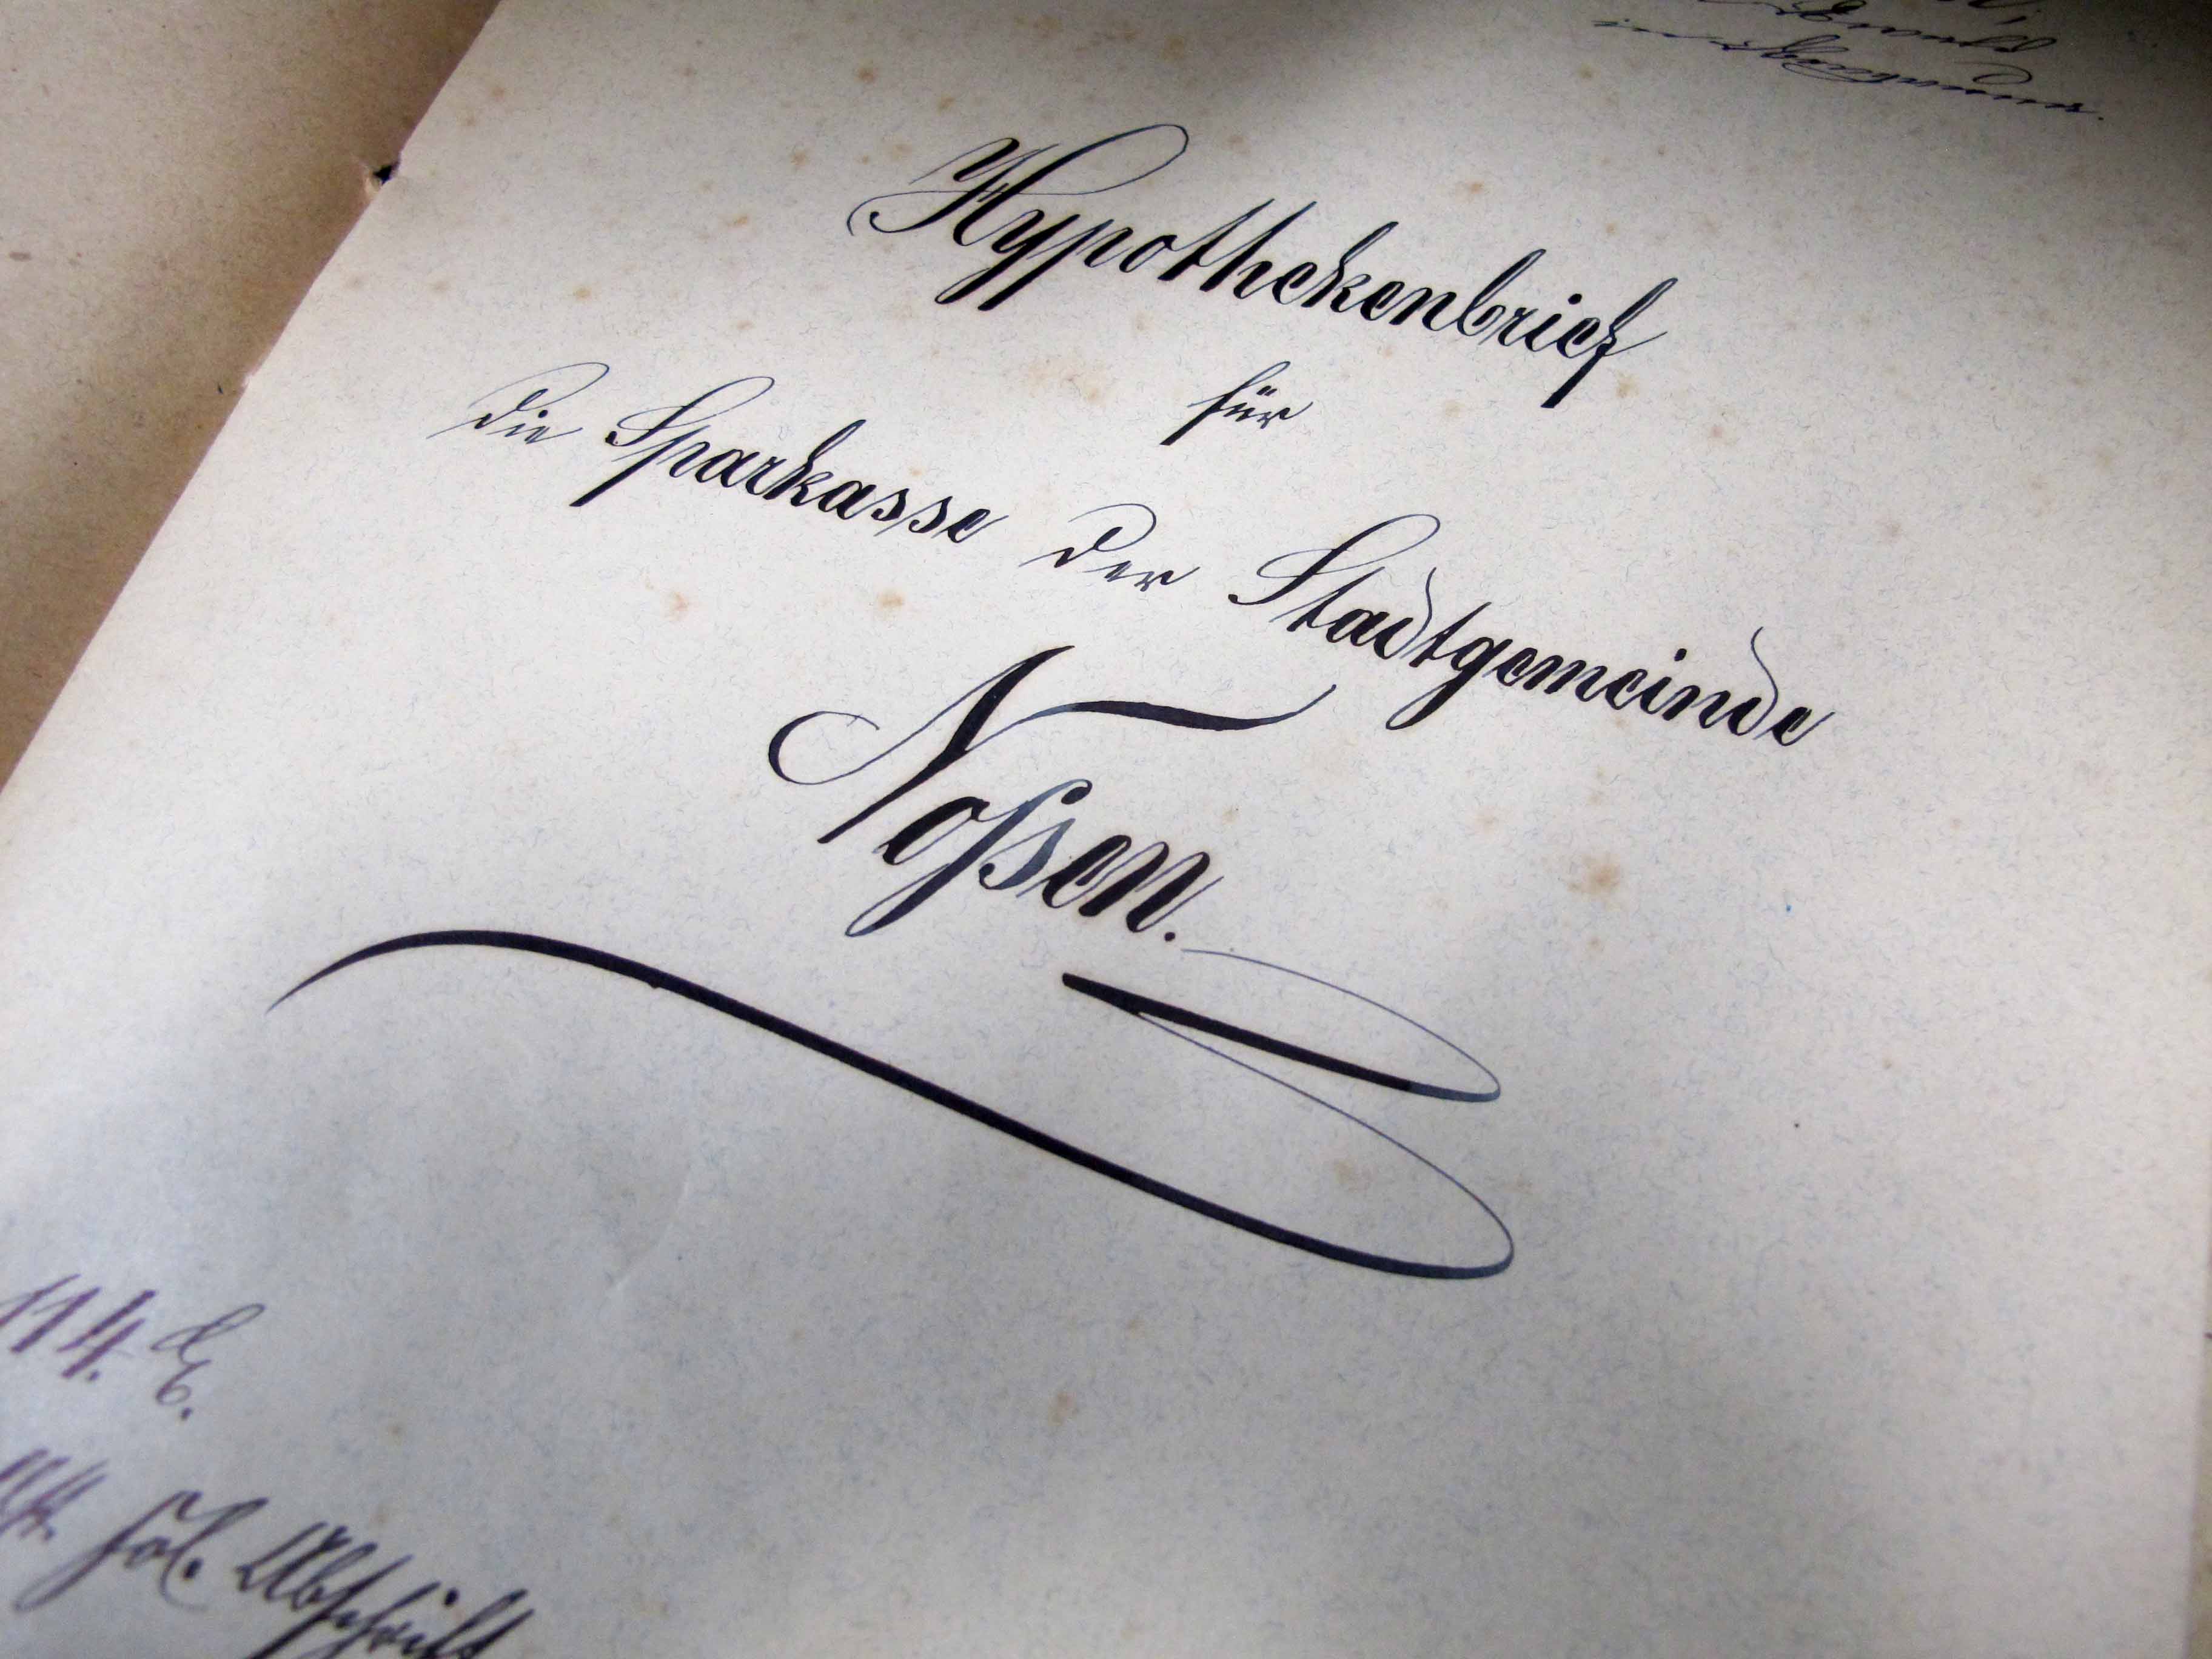 Hypothekenbrief
für
die Sparkasse der Stadtgemeinde
Noſsen.
114.
fol. Abschrift